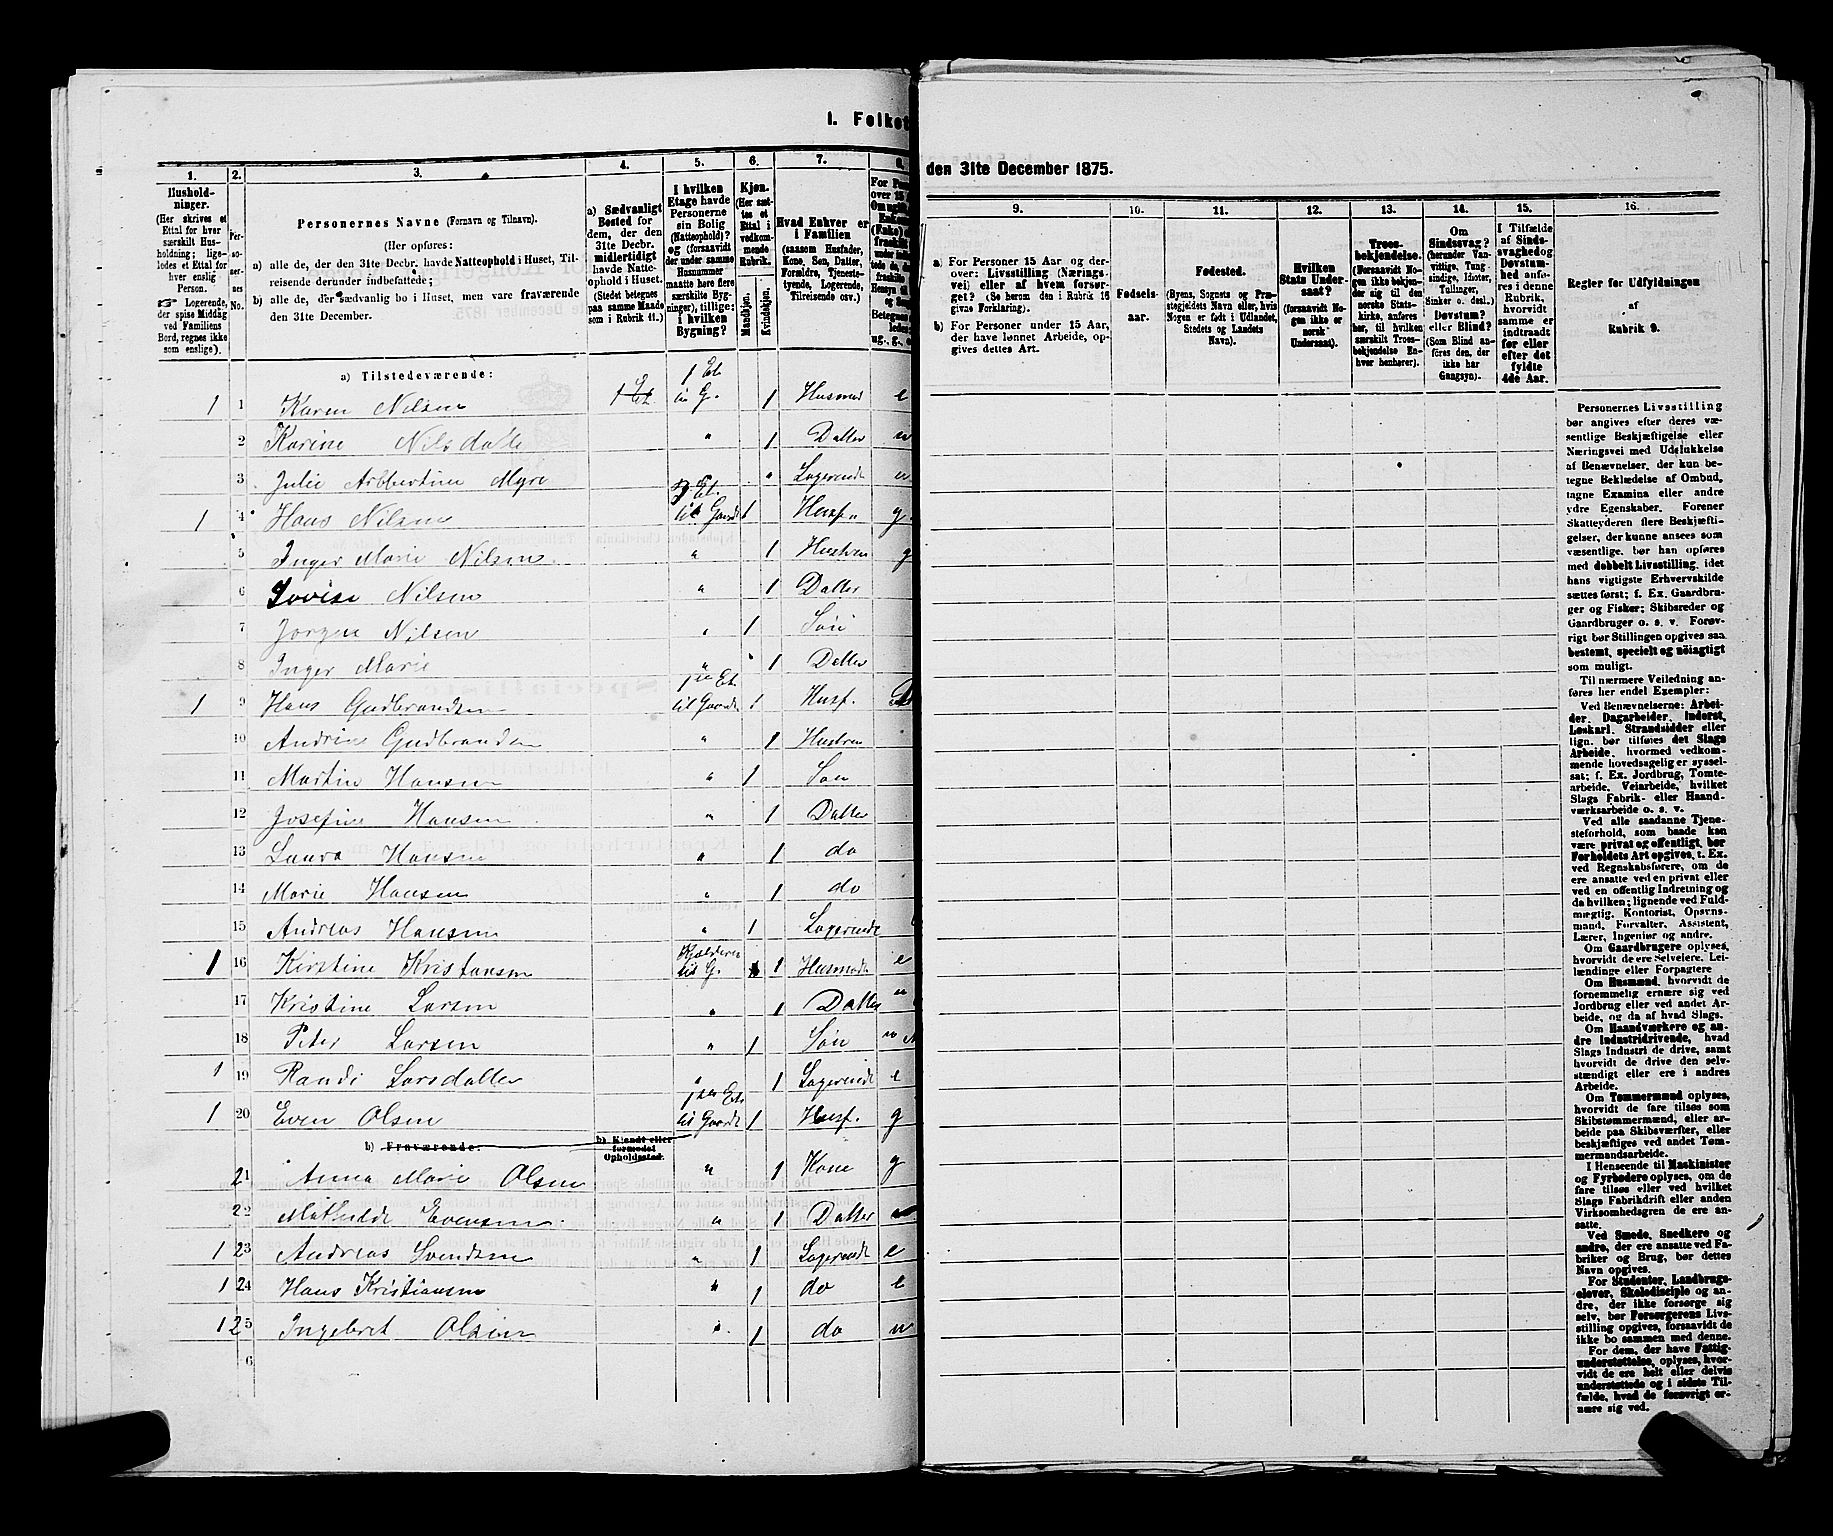 1. Folket
den 31te December 1875.
1.
2.
3.
4.
5.
6.
7.
8.
Hushold-
ninger.
(Her skrives et
Ettal for hver
særskilt Hus-
holdning; lige-
ledes et Ettal for
hver enslig
Person.
☞ Logerende,
der spise Middag
ved Familiens
Bord, regnes ikke
som enslige).
Per-
so-
ner-
nes
No.
Personernes Navne (Fornavn og Tilnavn).
(Her opføres:
a) alle de, der den 31te Decbr. havde Natteophold i Huset, Til-
reisende derunder indbefattede;
b) alle de, der sædvanlig bo i Huset, men vare fraværende
den 31te December.
a) Sædvanligt
Bosted for
dem, der den
31te Decbr.
midlertidigt
havde Natte-
ophold i Huset.
(Stedet betegnes
paa samme Maade
som i Rubrik 11.)
I hvilken
Etage havde
Personerne
sin Bolig
(Natteophold)?
og (forsaavidt
der under samme
Husnummer
maatte høre flere
særskilte Byg-
ninger), tillige:
i hvilken
Bygning?
Kjøn.
(Her sæt-
tes et
Ettal i
vedkom-
mende
Rubrik.
Mandkjøn.
Kvindekjøn.
Hvad Enhver er
i Familien
(saasom Husfader,
Kone, Søn, Datter,
Forældre, Tjeneste-
tyende, Logerende,
Tilreisende osv.)
a) Tilstedeværende:
1 1 Karen Nilsen 1 Et 1 Et i G. 1 Husmod e
2 Karine Nilsdatte " 1 Datter u
3 Julie Myre " Logerende u
1 4 Hans Nilsen Et. til Gaarde 1 Husf. g
5 Inger Marie Nilsen " 1 Hustru g
6 Lovise Nilsen " 1 Datter
7 Jørgen Nilsen " 1 Søn
8 Inger Marie " 1 Datter
1 9 Hans Gudbrandsen Et. til Gaarde 1 Husf.
10 Andrine Gudbrandsen " 1 Hustru
11 Martin Hansen " 1 Søn
12 Josefine Hansen " 1 Datter
13 Laura Hansen " 1 do
14 Marie Hansen " 1 do
15 Andreas Hansen " 1 Logerende
1 16 Kirstine Kristansen Kjælderen til G. 1 Husmode e
17 Kristine Larsen " 1 Datter u
18 Peter Larsen " 1 Søn u
1 19 Randi Larsdatter " 1 Logerende e
1 20 Even Olsen Et. til Gaarde 1 Husf. g
b) Fraværende:
b) Kjendt eller
formodet
Opholdssted.
21 Anna Marie Olsen " 1 Kone g
22 Mathilde Evensen " 1 Datter
1 23 Andreas Svendsen " 1 Logerende e
1 24 Hans Kristiansen " 1 do e
1 25 Ingebret Olsen " 1 do u
6
9.
10.
11.
12.
13.
14.
15.
16.
a) For Personer 15 Aar og der-
over: Livsstilling (Nærings-
vei) eller af hvem forsør-
get? (Se herom den i Rubrik 16
givne Forklaring).
b) For Personer under 15 Aar,
der have lønnet Arbeide, op-
gives dettes Art.
Fødsels-
aar.
Fødested.
(Byens, Sognets og Præ-
stegjeldets Navn eller, hvis
Nogen er født i Udlandet,
Stedets og Landets
Navn).
Hvilken
Stats Under-
saat?
(forsaavidt No-
gen ikke er
norsk
Undersaat).
Troes-
bekjendelse.
(Forsaavidt No-
gen ikke bekjen-
der sig til den
norske Stats-
kirke, anføres
her, til hvilken
særskilt Troes-
bekjendelse En-
hver henhører).
Om
Sindssvag?
(herunder Van-
vittige, Tung-
sindige, Idioter,
Tullinger,
Sinker o. desl.)
Døvstum?
eller Blind?
(Som Blind an-
føres den, der
ikke har
Gangsyn).
I Tilfælde
af Sinds-
svaghed og
Døvstum-
hed anfø-
res i denne
Rubrik,
hvorvidt
samme er
indtraadt
før eller
efter det
fyldte
4de Aar.
Regler for Udfyldningen
af
Rubrik 9.
Personernes Livsstilling
bør angives efter deres væ-
sentlige Beskjæftigelse eller
Næringsvei med Udelukkelse
af Benævnelser, der kun be-
tegne Beklædelse af Ombud,
tagne Examina eller andre
ydre Egenskaber. Forener
Skatteyderen flere Beskjæfti-
gelser, der kunne ansees som
væsentlige, bør han opføres
med dobbelt Livsstilling, idet
hans vigtigste Erhvervskilde
sættes først; f. Ex. Gaardbru-
ger og Fisker; Skibsreder og
Gaardbruger o. s. v. Forøv-
rigt bør Stillingen opgives saa
bestemt, specielt og nøiagtigt
som muligt.
Til nærmere Veiledning an-
føres her endel Exempler:
Ved Benævnelserne: Arbei-
der, Dagarbeider, Inderst,
Løskarl, Strandsidder eller
lign. bør tilføres det Slags
Arbeide, hvormed vedkom-
mende hovedsagelig er syssel-
sat; f. Ex. Jordbrug, Tomte-
arbeide, Veiarbeide, hvilket
Slags Fabrik- eller Haand-
værksarbeide o. s. v.
Ved alle saadanne Tjene-
steforhold, som baade kan
være privat og offentligt, bør
Forholdets Art opgives, t. Ex.
ved Regnskabsførere, om de
ere ansatte ved en privat eller
ved en offentlig Indretning og
da hvilken; lignende ved Fuld-
mægtig, Kontorist, Opsyns-
mand, Forvalter, Assistent,
Lærer, Ingeniør og andre.
Om Gaardbrugere oplyses,
hvorvidt de ere Selveiere, Lei-
lændinge eller Forpagtere
Om Husmænd, hvorvidt de
fornemmelig ernære sig ved
Jordbrug eller ved andet Ar-
beide, og da af hvad Slags.
Om Haandværkere og an-
dre Industridrivende, hvad
Slags Industri de drive, samt
hvorvidt de drive den selv-
stændigt eller ere i andres
Arbeide.
Om Tømmermænd oplyses,
hvorvidt de fare tilsøs som
Skibstømmermænd, eller ar-
beide paa Skibsværfter, eller
beskjæftiges ved andet Tøm-
mermandsarbeide.
I Henseende til Maskinister
og Fyrbødere oplyses, om de
fare tilsøs eller ved hvilket
Slags Fabrikdrift eller anden
Virksomhedsgren de ere an-
satte.
Ved Smede, Snedkere og
andre, der ere ansatte ved Fa-
briker og Brug, bør dettes
Navn opgives.
For Studenter, Landbrugs-
elever, Skoledisciple og an-
dre, der ikke forsørge sig
selv, bør Forsørgerens Livs-
stilling opgives, forsaavidt de
ikke bo sammen med denne.
For dem, der have Fattig-
understøttelse, oplyses, hvor-
vidt de ere helt eller delvis
understøttede og i sidste Til-
fælde, hvad de forøvrigt er-
nære sig ved.